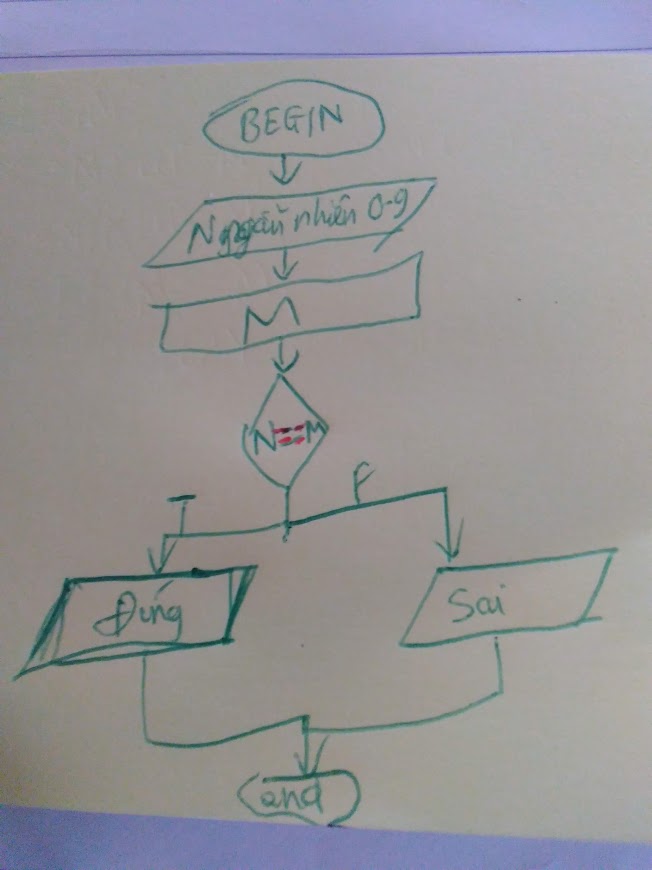 BEGIN
N ngẫu nhiên 0-9
M
N==M
T
F
Đúng
Sai
end